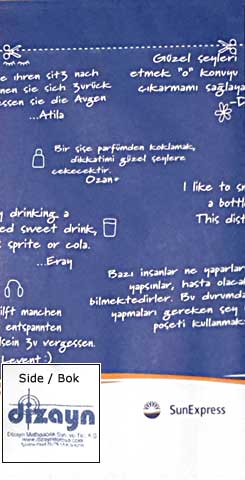 Güzel şeyleri
etmek "o" konuyu
çıkarmamı sağlaya
e Ihren sitz nach
nen sie sich zurück
essen sie die Augen
...Atila
Bir şişe parfümden koklamak,
dikkatimi güzel şeylere
çekecektir.
Ozan
I like to s
a bottl
This dist
y drinking a
ed sweet drink,
sprite or cola.
...Eray
Bazı insanlar ne yaparlar
yapsınlar, hasta olaca
bilmektedirler. Bu durumda
yapmaları gereken şey
poşeti kullanmak
ilft manchen
entspannten
lsein zu vergessen.
Levent :)
Side / Bok
dizayn
SunExpress